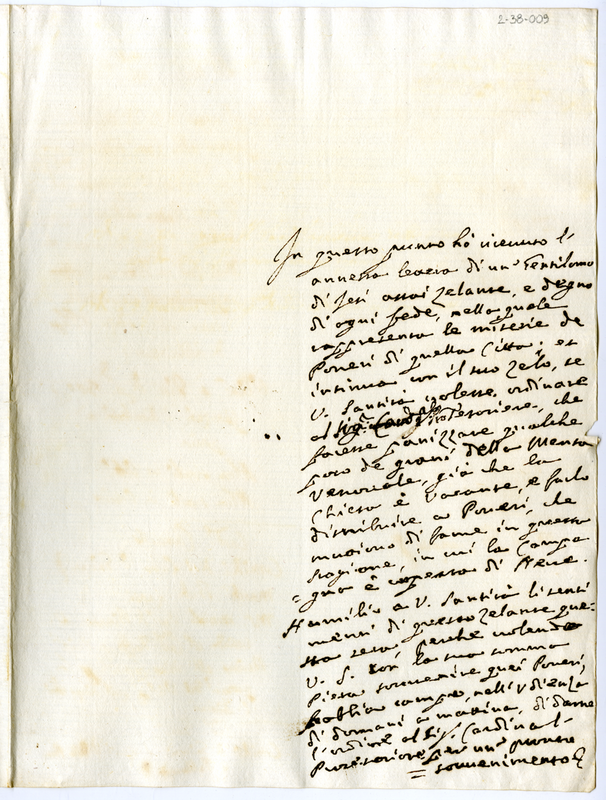 2-38-009
In questo punto hó riceuuto l'
annessa lettera di un Gentilomo
di Jesi assai zelante, e degno
di ogni fede, nella quale
rappresenta le miserie de
Poueri di quella Città; et
insinua con il suo zelo, se
V. Santità uolesse ordinare
al Sig.r Card.l ProTesoriere, che
facesse panizzare qualche
poco de grani della Mensa
Vescouale, già che la
Chiesa è Vacante, e farlo
distribuire a Poueri, che
muoiono di fame in questa
stagione, in cui la Campa
=gna è coperta di Neue.
Humilio a V. Santità li senti
menti di questo zelante que=
sta sera perche uolendo
V. S. con la sua somma
Pietà souuenire quei Poueri,
habbia campo, nell'Vdienza
di domani a mattina, di darne
l'ordine al Sig. Cardinal
ProTesoriere per un pronto
= souuenimento